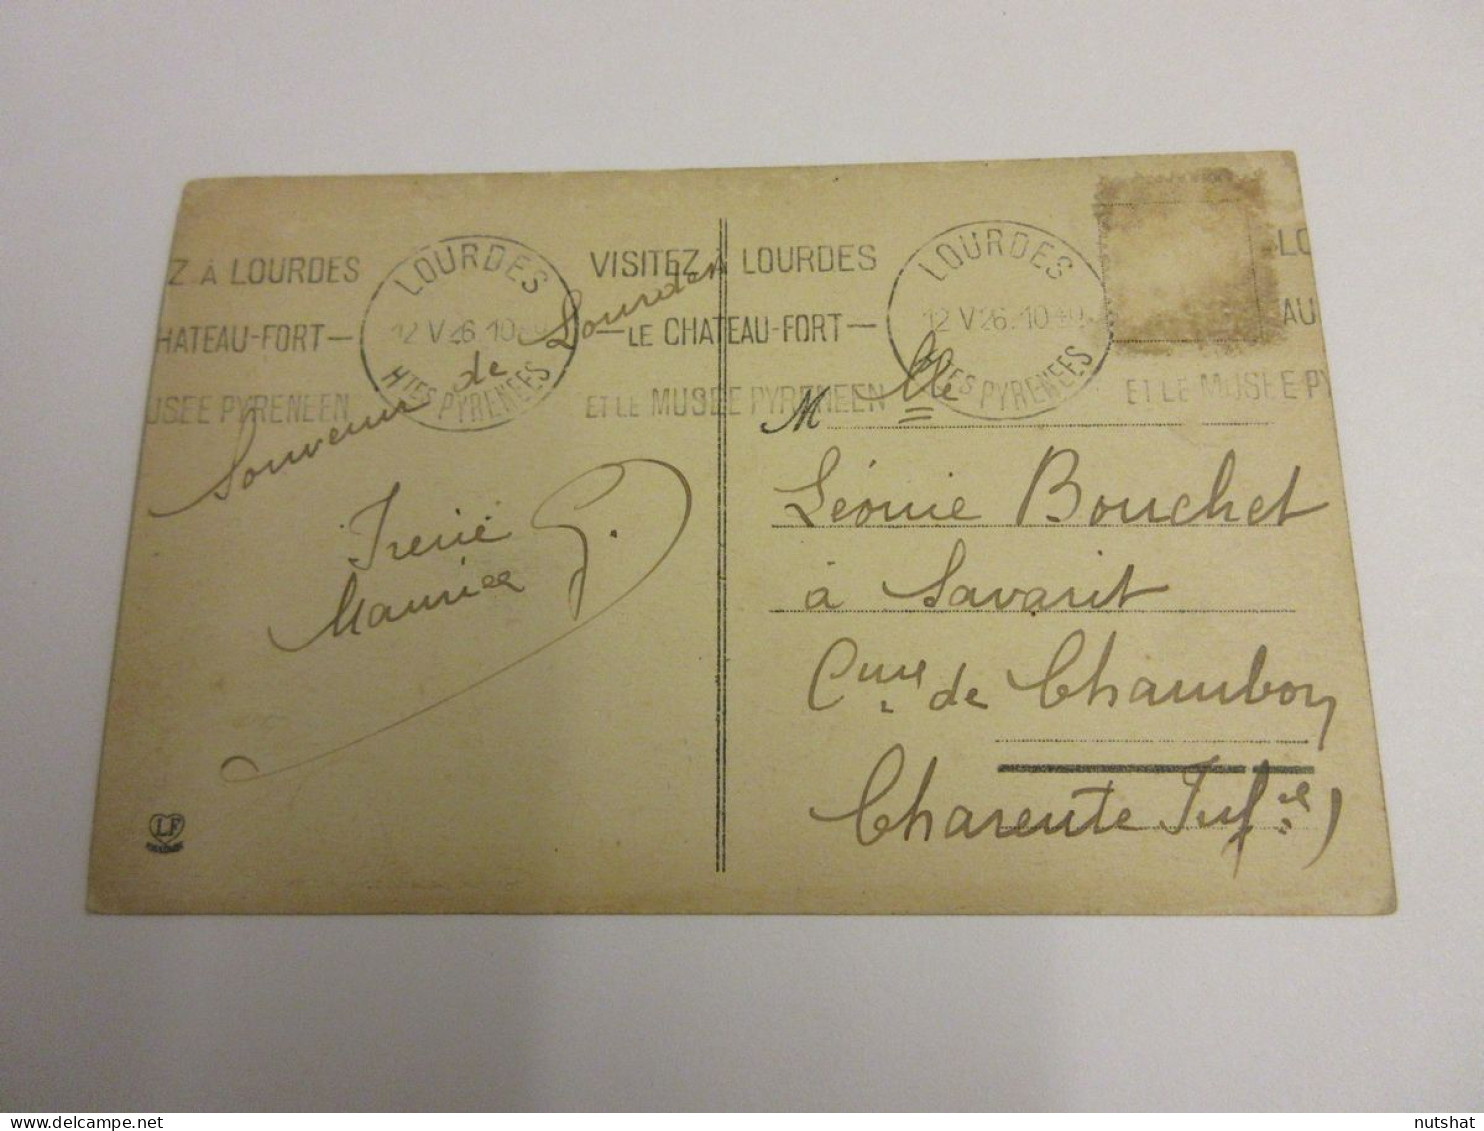 Z À LOURDES
HATEAU-FORT —
USÉE PYRENEEN
LOURDES
12 V 26. 10 40
HTES PYRENEES
VISITEZ À LOURDES
— LE CHATEAU-FORT —
ET LE MUSÉE PYRENEEN
LOURDES
12 V 26. 10 40
HTES PYRENEES
LO
AU
ET LE MUSEE PY
Souvenir de Lourdes
Irène
Maurice G.
M lle
Léonie Bouchet
à Savarit
Cune de Chambon
Charente Infre)
LF
nutshat